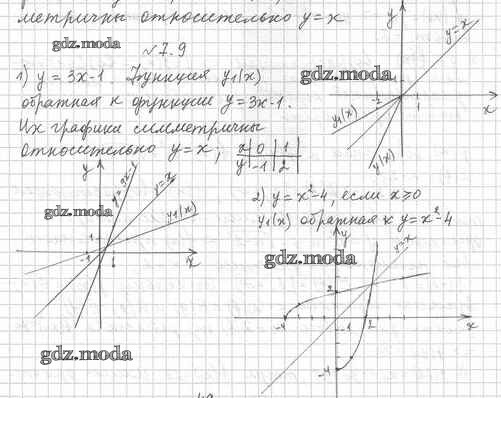 метричны относительно y=x
gdz.moda
N 7.9
1) y = 3x-1. Функция y₁(x)
обратная к функции y=3x-1.
Их графики симметричны
относительно y=x;
x 0 1
y -1 2
y
y=x
gdz.moda
-2
1
x
y₁(x)
y(x)
y
y=3x-1
y=x
gdz.moda
y₁(x)
1
-1
1
x
gdz.moda
2) y=x²-4, если x≥0
y₁(x) обратная к y=x²-4
y
y=x
gdz.moda
2
-4
-1
2
x
-4